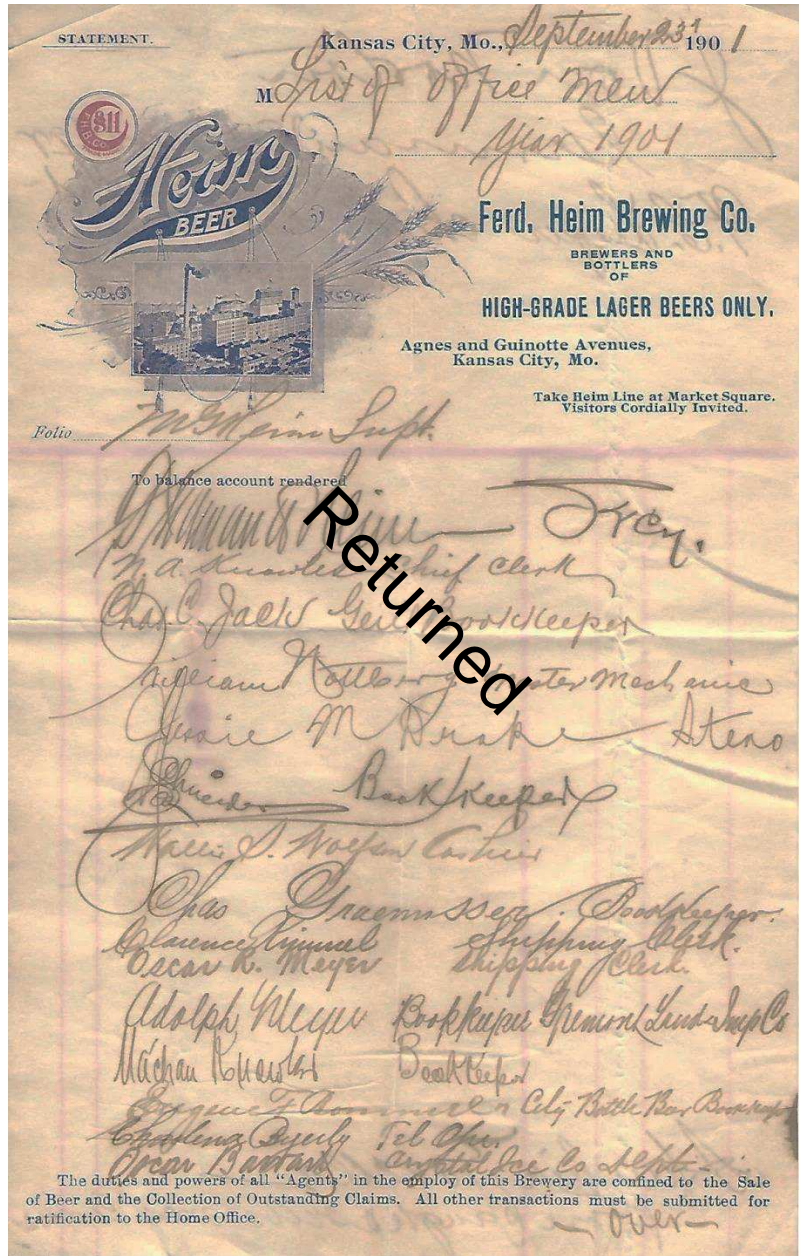 STATEMENT.
Kansas City, Mo., September 23rd 1901
M List of Office Men
Year 1901
F.H.B.Co.
Heim
BEER
Ferd. Heim Brewing Co.
BREWERS AND
BOTTLERS
OF
HIGH-GRADE LAGER BEERS ONLY.
Agnes and Guinotte Avenues,
Kansas City, Mo.
Take Heim Line at Market Square.
Visitors Cordially Invited.
Folio M G Heim Supt.
To balance account rendered
Heim Trcy.
Returned
N. A. Knowles Chief Clerk
Chas. C. Jack Gen. Bookkeeper
William Master Mechanic
Jessie M Drake Steno
Schneider Bookkeeper
Cashier
Chas Bookkeeper.
Clarence Kimmel Shipping Clerk.
Oscar R. Meyer Shipping Clerk.
Adolph Meyer Bookkeeper Land & Imp Co
Knowles Bookkeeper
Eugene F City Bottle Beer Bookkeeper
Byerly Tel Oper.
Oscar Crystal Ice Co Dept.
The duties and powers of all "Agents" in the employ of this Brewery are confined to the Sale
of Beer and the Collection of Outstanding Claims. All other transactions must be submitted for
ratification to the Home Office.
- over -